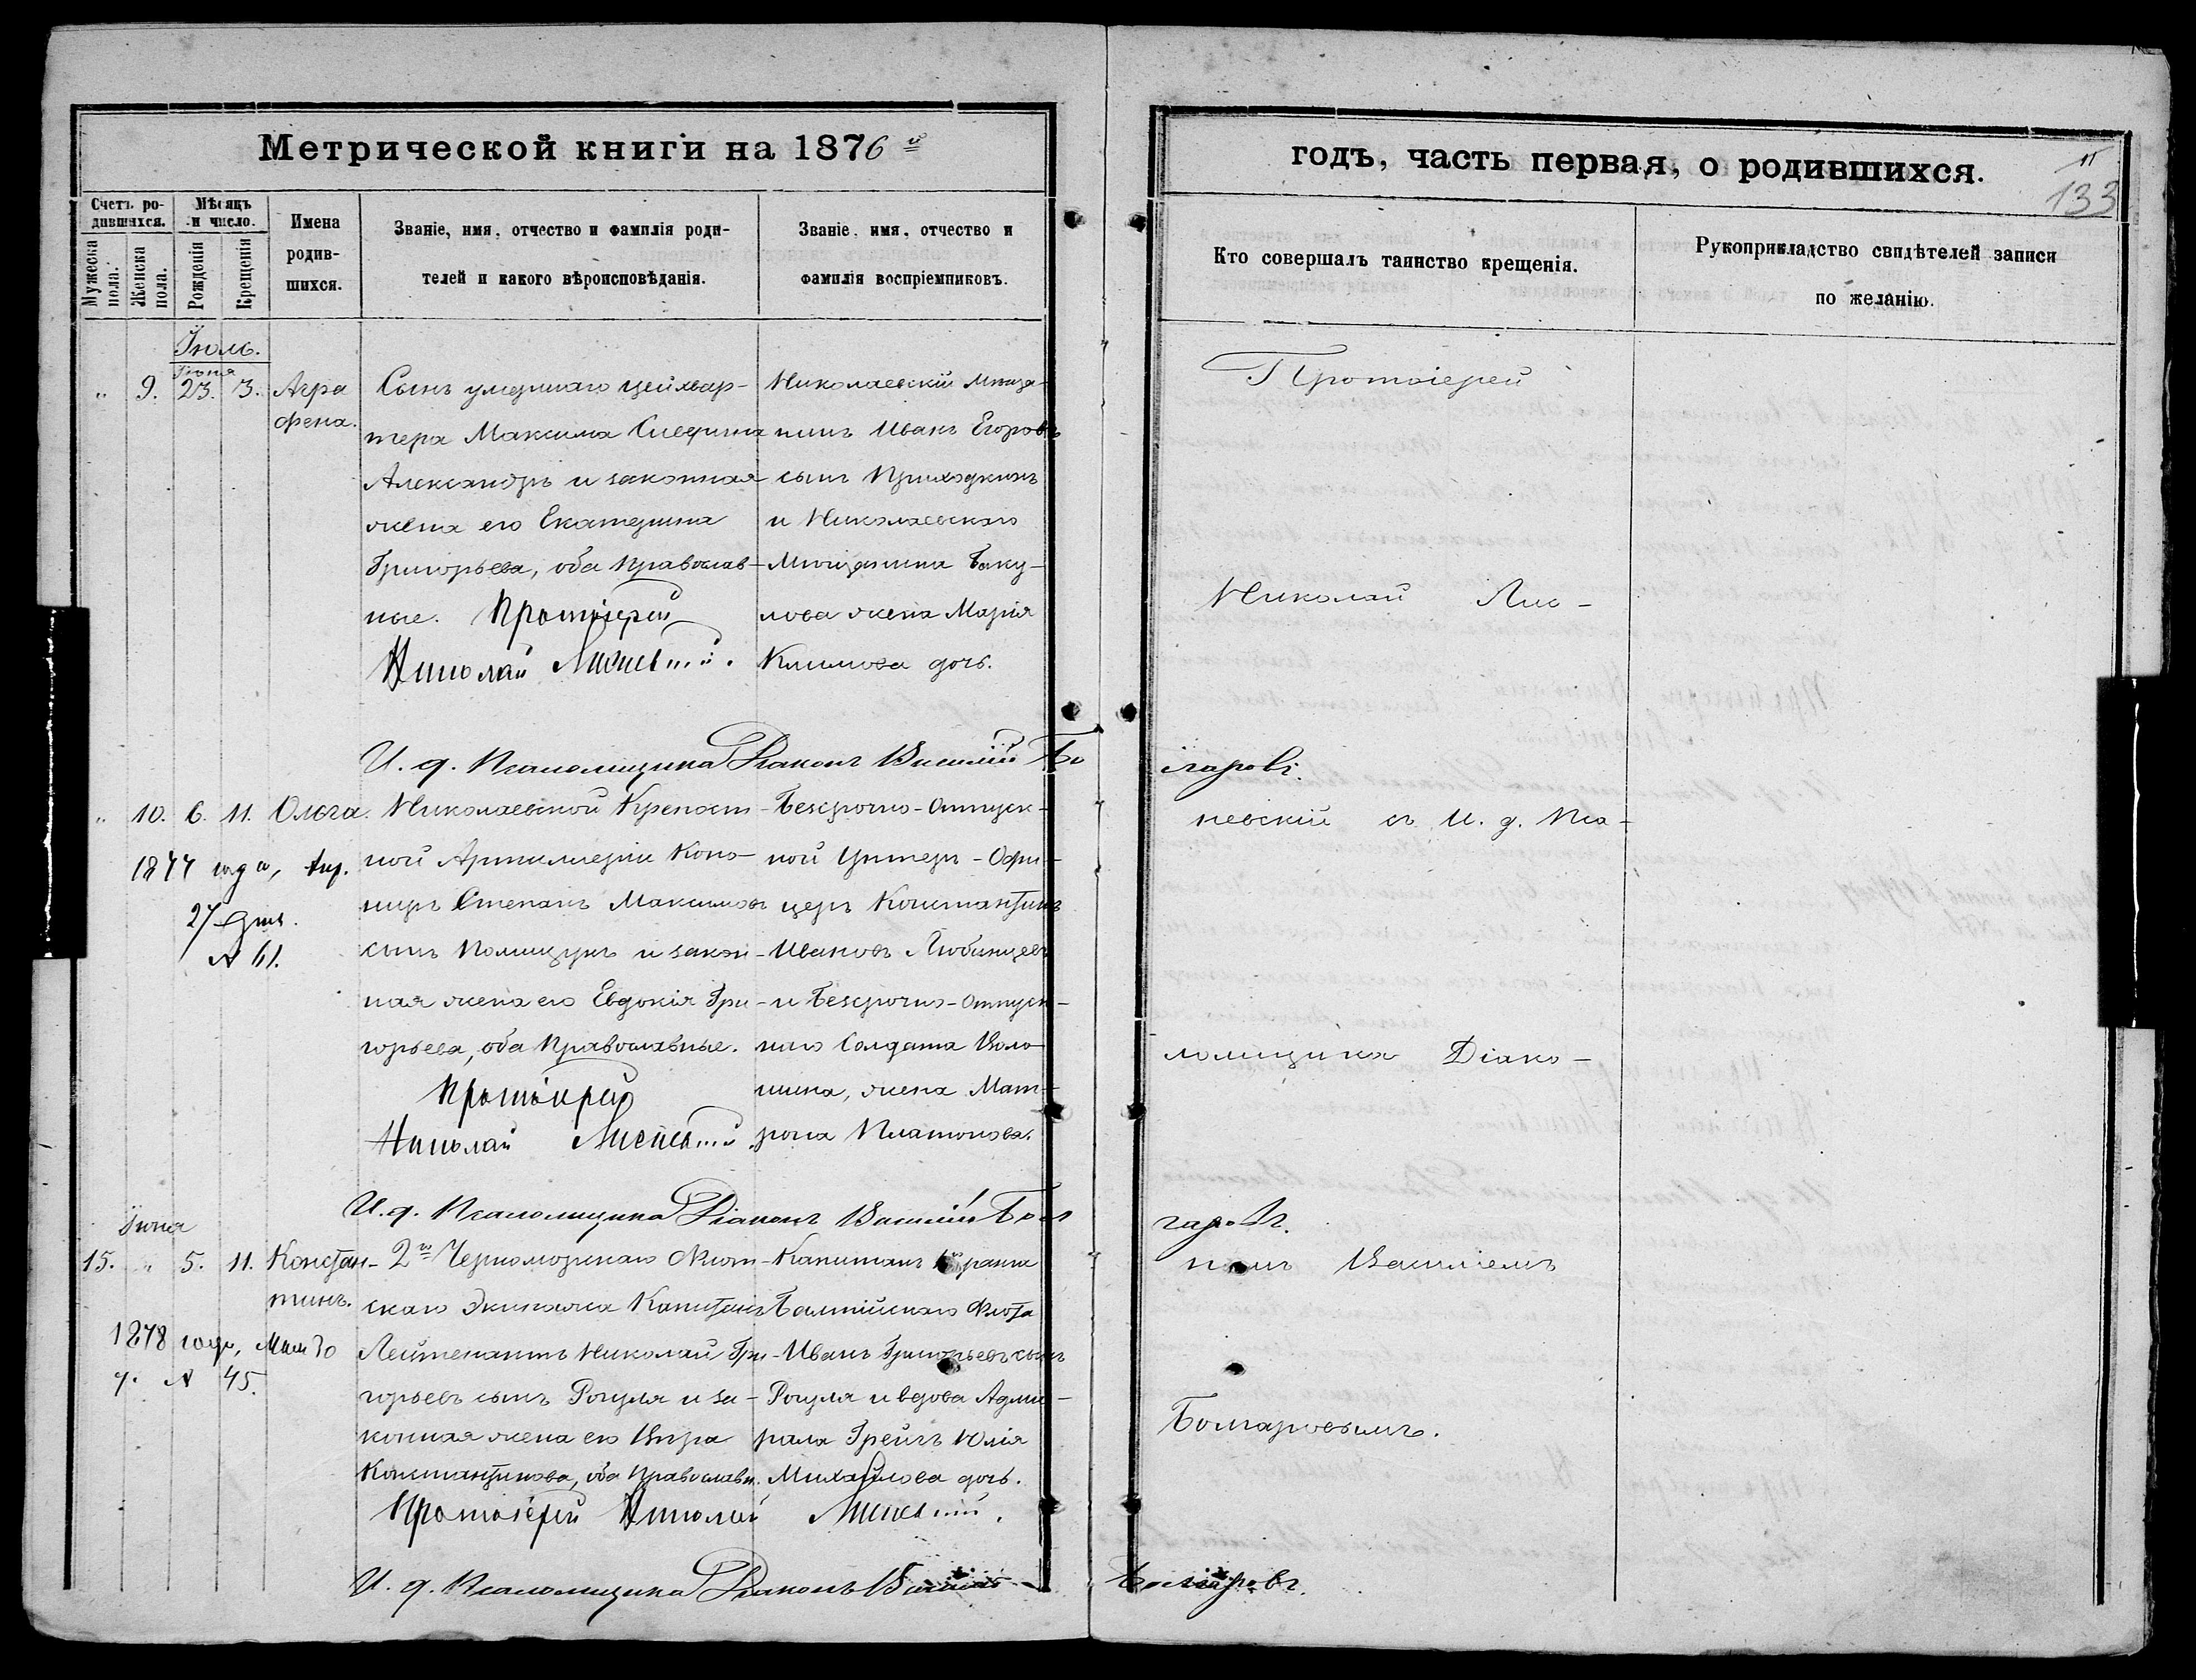 Метрической книги на 1876й
годъ, часть первая, о родившихся.
11
133
Счетъ ро-
дившихся.
Мужеска пола.
Женска пола.
Мѣсяцъ
и число.
Рожденія
Крещенія
Имена
родив-
шихся.
Званіе, имя, отчество и фамилія роди-
телей и какого вѣроисповѣданія.
Званіе, имя, отчество и
фамилія воспріемниковъ.
Кто совершалъ таинство крещенія.
Рукоприкладство свидѣтелей записи
по желанію.
Іюль.
Іюня
" 9. 23. 3. Агра
фена.
Сынъ умершаго цейхвар-
тера Максима
Александръ и законная
жена его Екатерина
Григорьева, оба православ-
ные. Протоіерей
Николай Лисневскій.
Николаевскій мѣща-
нинъ Иванъ Егоровъ
сынъ Приходкинъ
и Николаевскаго
мѣщанина Баку-
лова жена Марія
Климова дочь.
Протоіерей
Николай Лис-
И. д. Псаломщика Діаконъ Василій Болгаровъ.
" 10. 6. 11. Ольга.
1877 года, Апр.
27 дня.
№ 61.
Николаевской Крѣпост-
ной Артиллеріи Коно-
ниръ Степанъ Максимовъ
сынъ Полищукъ и закон-
ная жена его Евдокія Гри-
горьева, оба православные.
Протоіерей
Николай Лисневскій.
Безсрочно-отпуск-
ной Унтеръ-Офи-
церъ Константинъ
Ивановъ Любинцевъ
и Безсрочно-отпуск-
наго Солдата Воло-
шина, жена Мат-
рона Платонова.
невскій съ И. д. Пса-
ломщика Діако-
И. д. Псаломщика Діаконъ Василій Болгаровъ.
Іюня
15. " 5. 11. Констан-
тинъ.
1878 года, Мая 30
д. № 45.
2го Черноморскаго Флот-
скаго Экипажа Капитанъ
Лейтенантъ Николай Гри-
горьевъ сынъ Рогуля и за-
конная жена его Вѣра
Константинова, оба православн.
Протоіерей Николай Лисневскій.
Капитанъ 1го ранга
Балтійскаго Флота
Иванъ Григорьевъ сынъ
Рогуля и вдова Адми-
рала Грейгъ Юлія
Михайлова дочь.
номъ Василіемъ
Болгаровымъ.
И. д. Псаломщика Діаконъ Василій Болгаровъ.